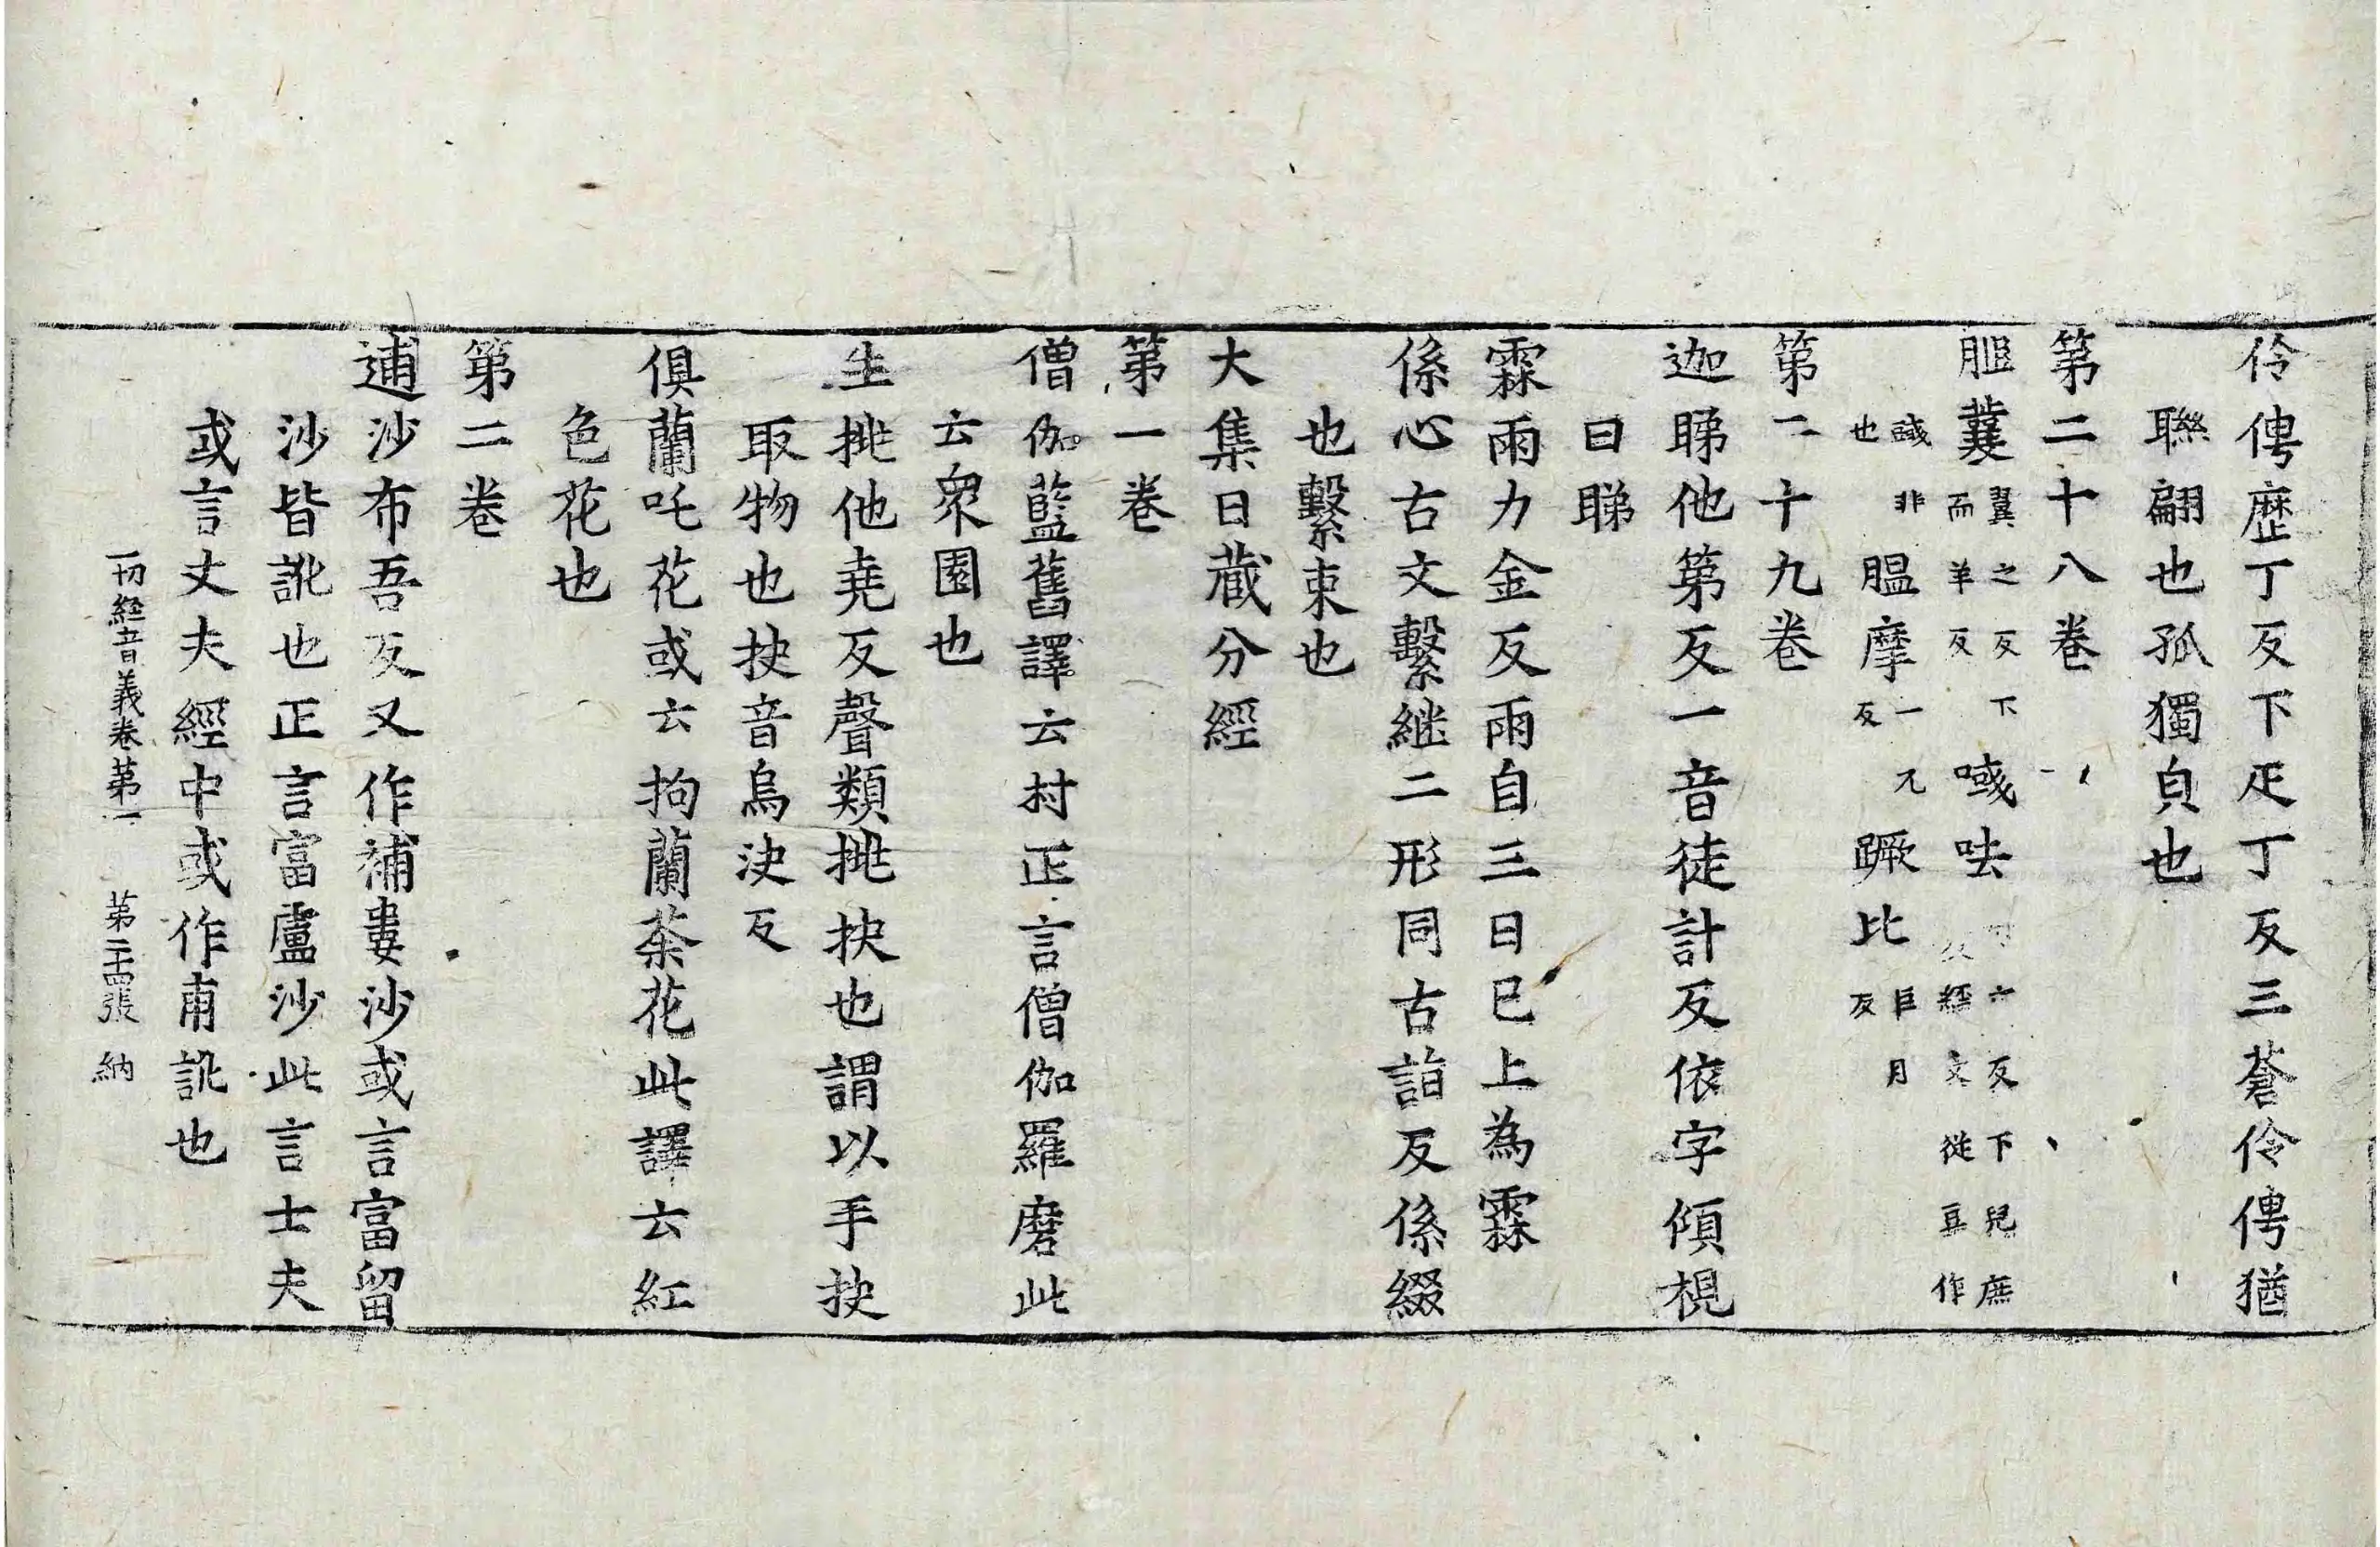 伶俜歷丁反下疋丁反三蒼伶俜猶
聯翩也孤獨皃也
第二十八卷
䏰蘘翼之反下而羊反㘋呿六反下兒庶反經文從豆作
䜸非也腽摩一兀反蹶比巨月反
第二十九卷
迦睇他第反一音徒計反依字傾視
曰睇
霖雨力金反雨自三日已上為霖
係心古文繫継二形同古詣反係綴
也繫束也
大集日藏分經
第一卷
僧伽藍舊譯云村正言僧伽羅磨此
云衆園也
生挑他堯反聲類挑抉也謂以手抉
取物也抉音烏決反
俱蘭吒花或云拘蘭荼花此譯云紅
色花也
第二卷
逋沙布吾反又作補婁沙或言富留
沙皆訛也正言富盧沙此言士夫
或言丈夫經中或作甫訛也
一切經音義卷第一 第二十四張 納